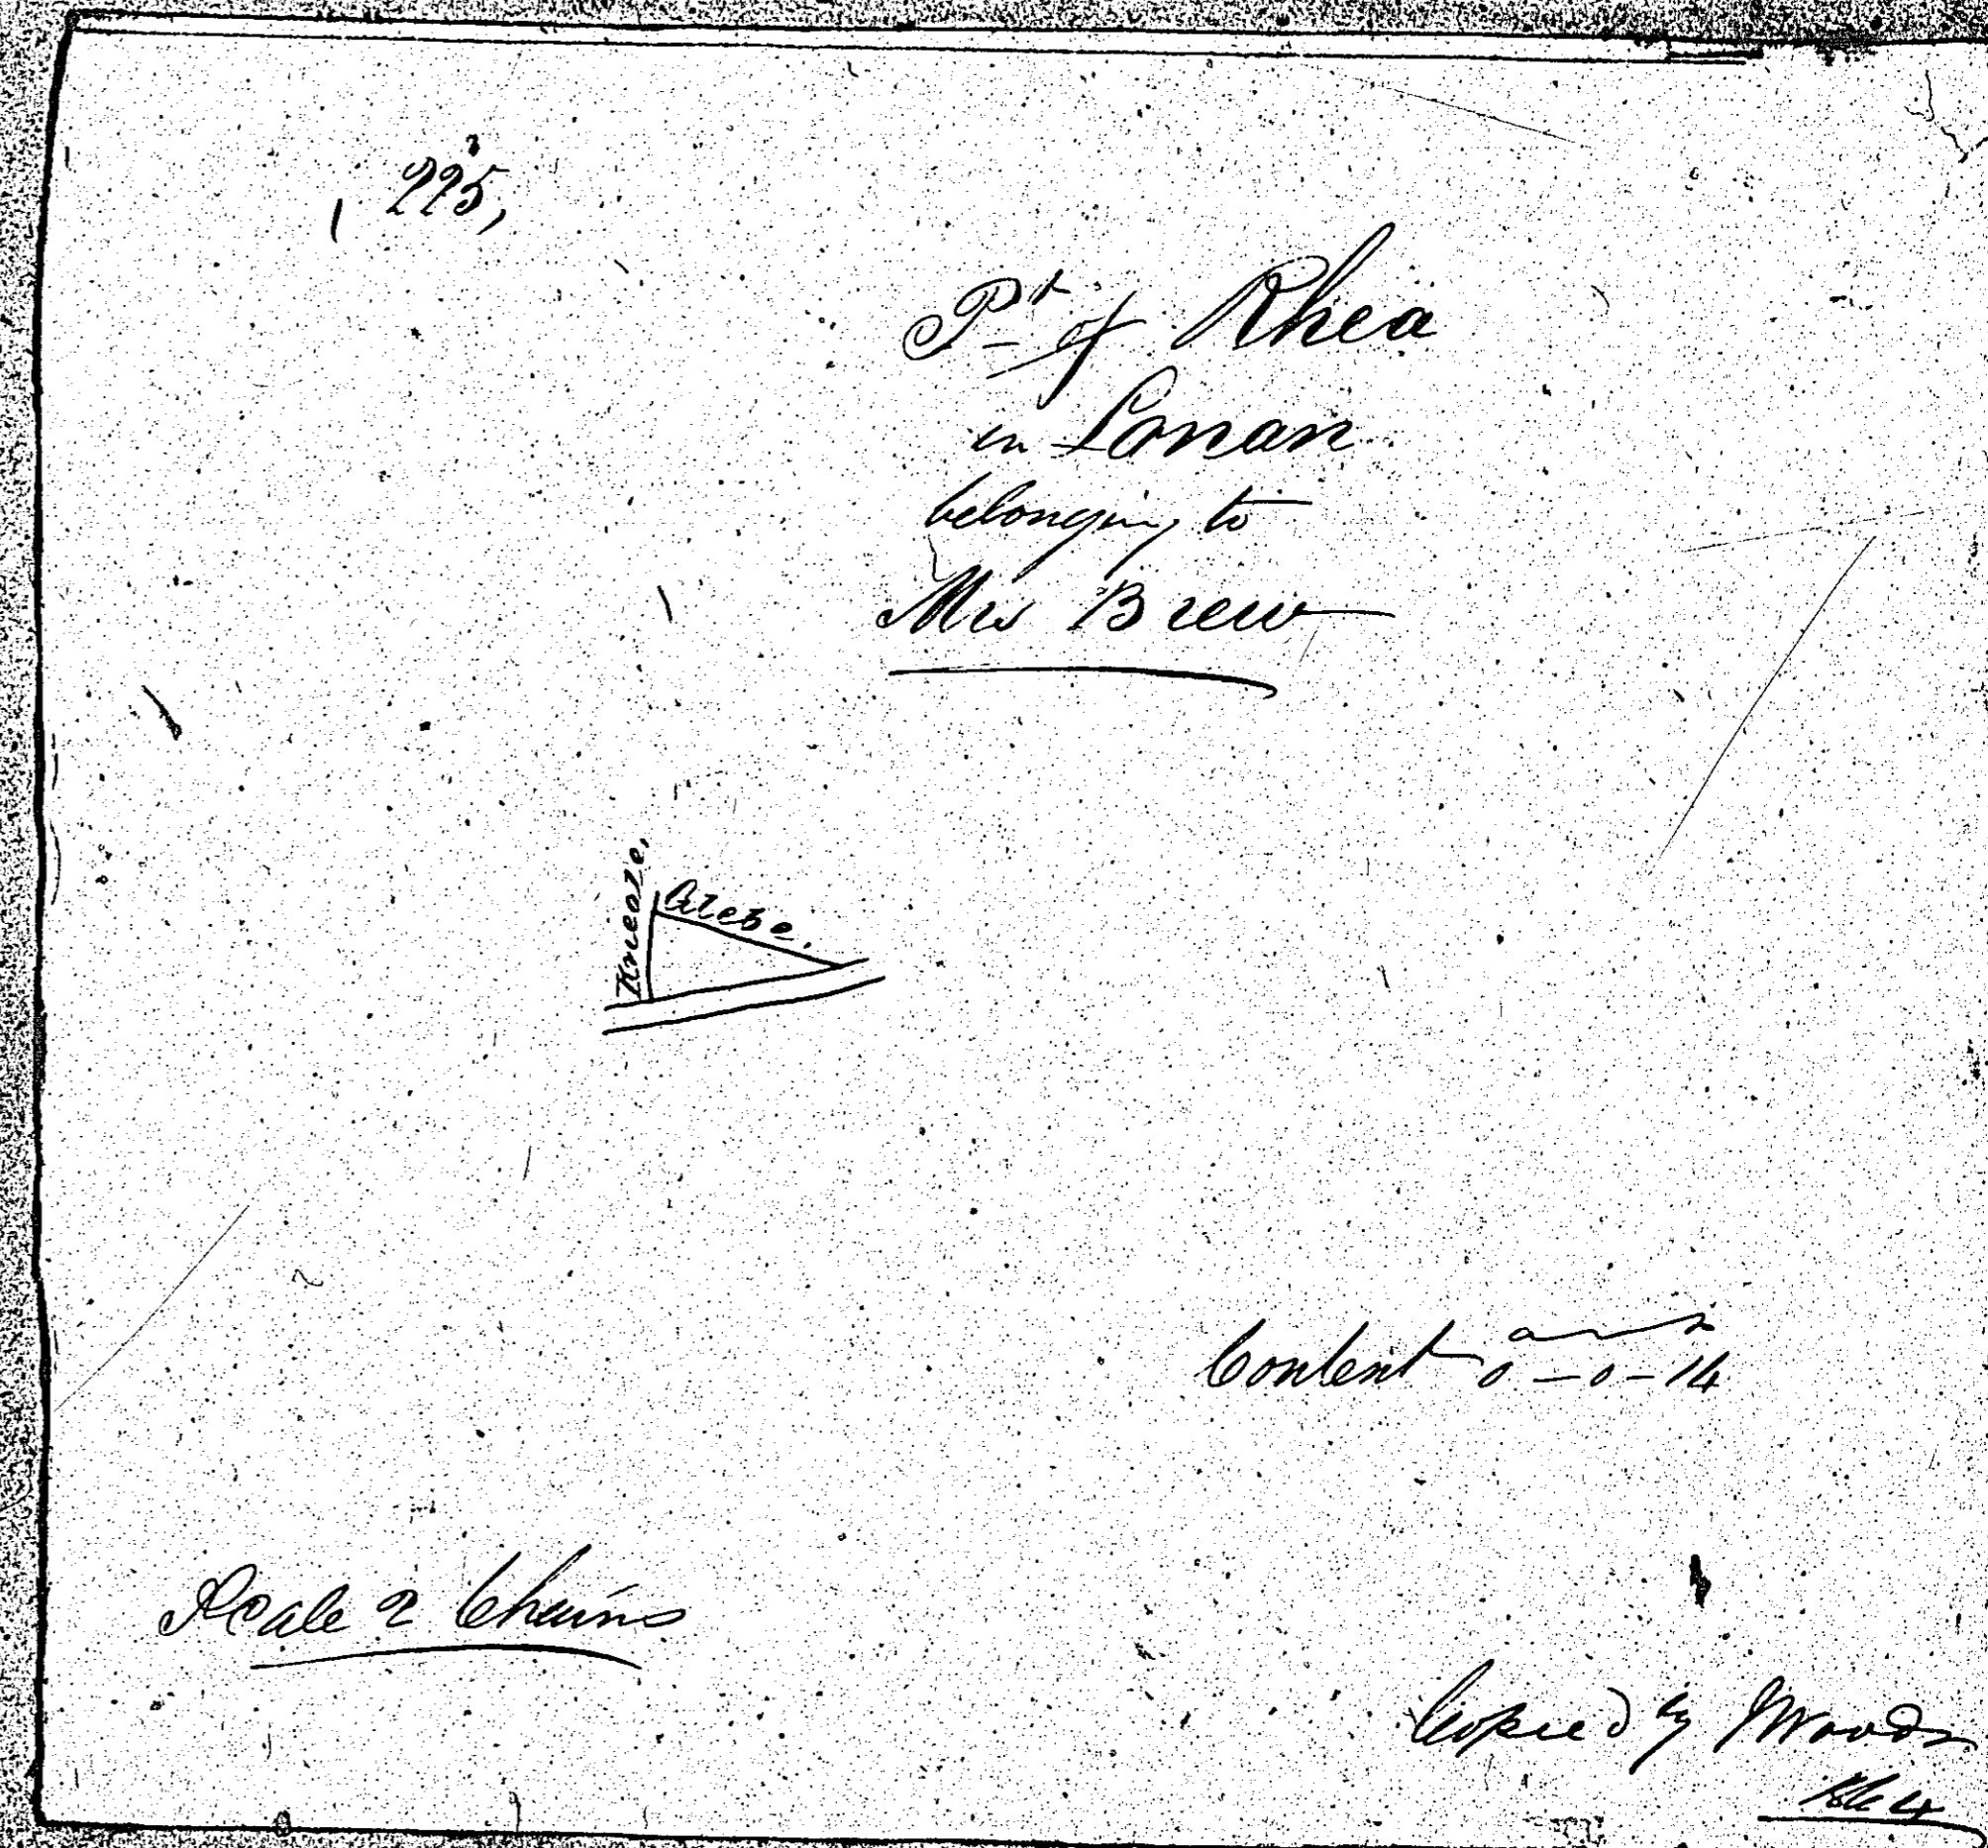 225,
Pt of Rhea
in Lonan
belonging to
Mrs Brew
Kneale,
Glebe.
a r p
Content 0-0-14
Scale 2 Chains
Copied by JWoods
1864